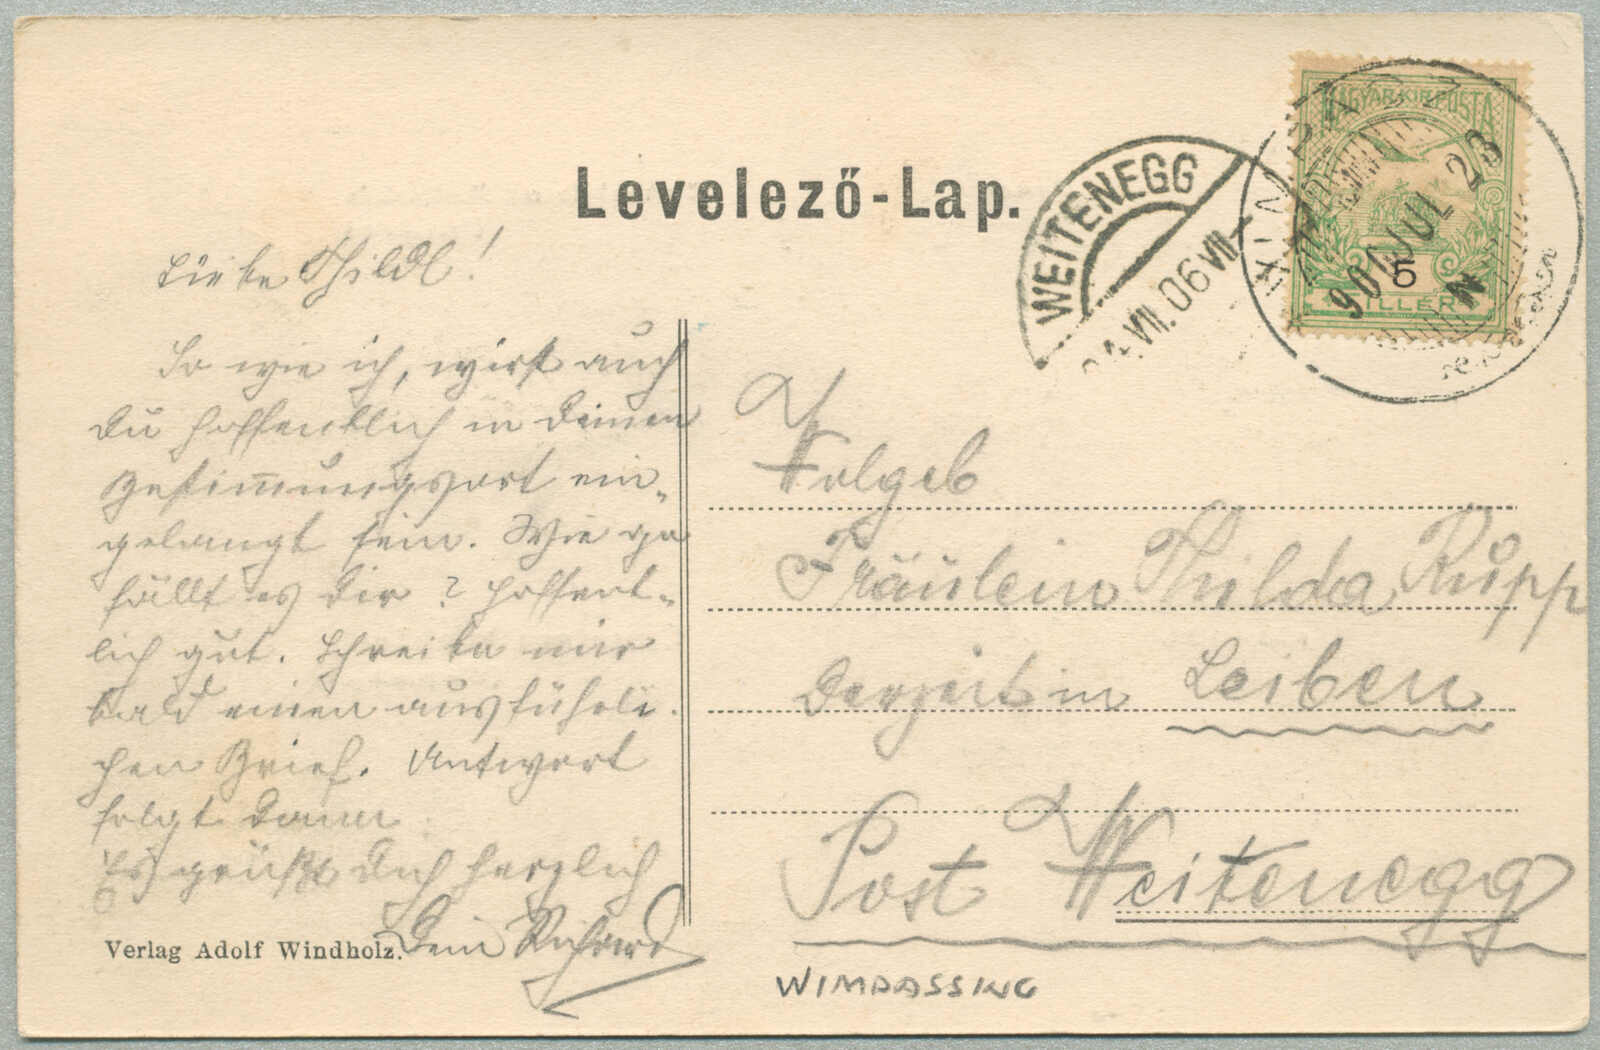 Levelező-Lap.
MAGYAR KIR. POSTA
5
FILLÉR
906 JUL 23
WEITENEGG
24.VII.06 VII
Liebe Thildl!
So wie ich, wirst auch
Du hoffentlich in Deinen
Bestim̄ungsort ein-
gelangt sein. Wie ge
fällt es Dir? Hoffent-
lich gut. Schreibe mir
bald einen ausführli-
chen Brief. Antwort
folgt dann.
Es grüßt Dich herzlich
Dein Richard
Verlag Adolf Windholz.
Wolgeb
Fräulein Thilda Rupp
derzeit in Leiben
Post Weitenegg
WIMPASSING